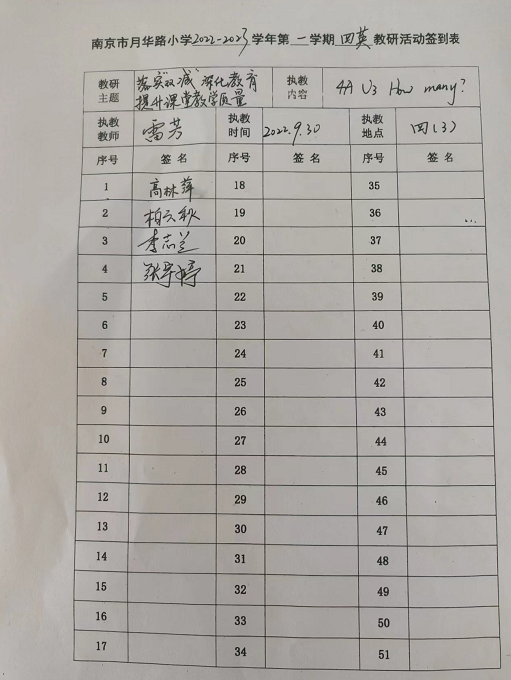 南京市月华路小学2022-2023学年第一学期四英教研活动签到表
教研主题 落实“双减” 深化教育 提升课堂教学质量 执教内容 4A U3 How many?
执教教师 雷芳 执教时间 2022.9.30 执教地点 四(3)
序号 签名 序号 签名 序号 签名
1 高林萍 18 35
2 柏云秋 19 36
3 李志兰 20 37
4 21 38
5 22 39
6 23 40
7 24 41
8 25 42
9 26 43
10 27 44
11 28 45
12 29 46
13 30 47
14 31 48
15 32 49
16 33 50
17 34 51